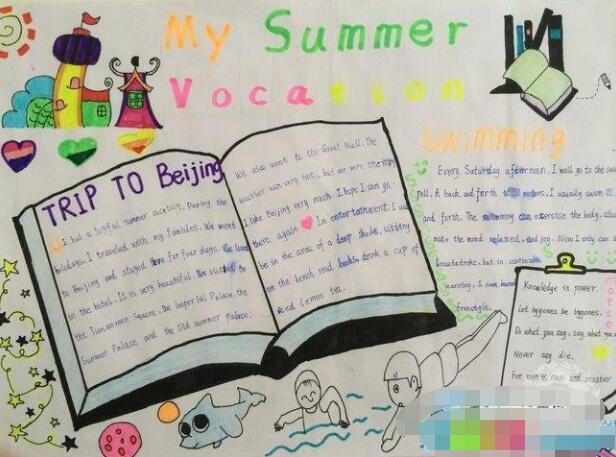 My Summer
Vocation
TRIP TO Beijing
I had a joyful summer vacation. During the
holidays, I traveled with my families. We went
to Beijing and stayed there for four days. We lived
in the hotel. It is very beautiful. We visited to
the Tiananmen Square, the Imperial Palace, the
Summer Palace and the Old summer Palace.
We also went to the Great Wall. The
weather was very hot, but we were
I like Beijing very much. I hope I can go
there again. In entertainment, I
be in the area of a deep shade, sitting
on the bench read books, drink a cup of
iced Lemon tea.
Swimming
Every Saturday afternoon, I will go to the
pool. A back and forth to 50 metres. I usually swim
and forth. The swimming can exercise the body, also
make the mood relaxed, and joy. Now I only can
breaststroke, but in
learning, I
freestyle.
Knowledge is power.
Let bygones be bygones.
Do what you say, say what you
Never say die.
For man is man and master